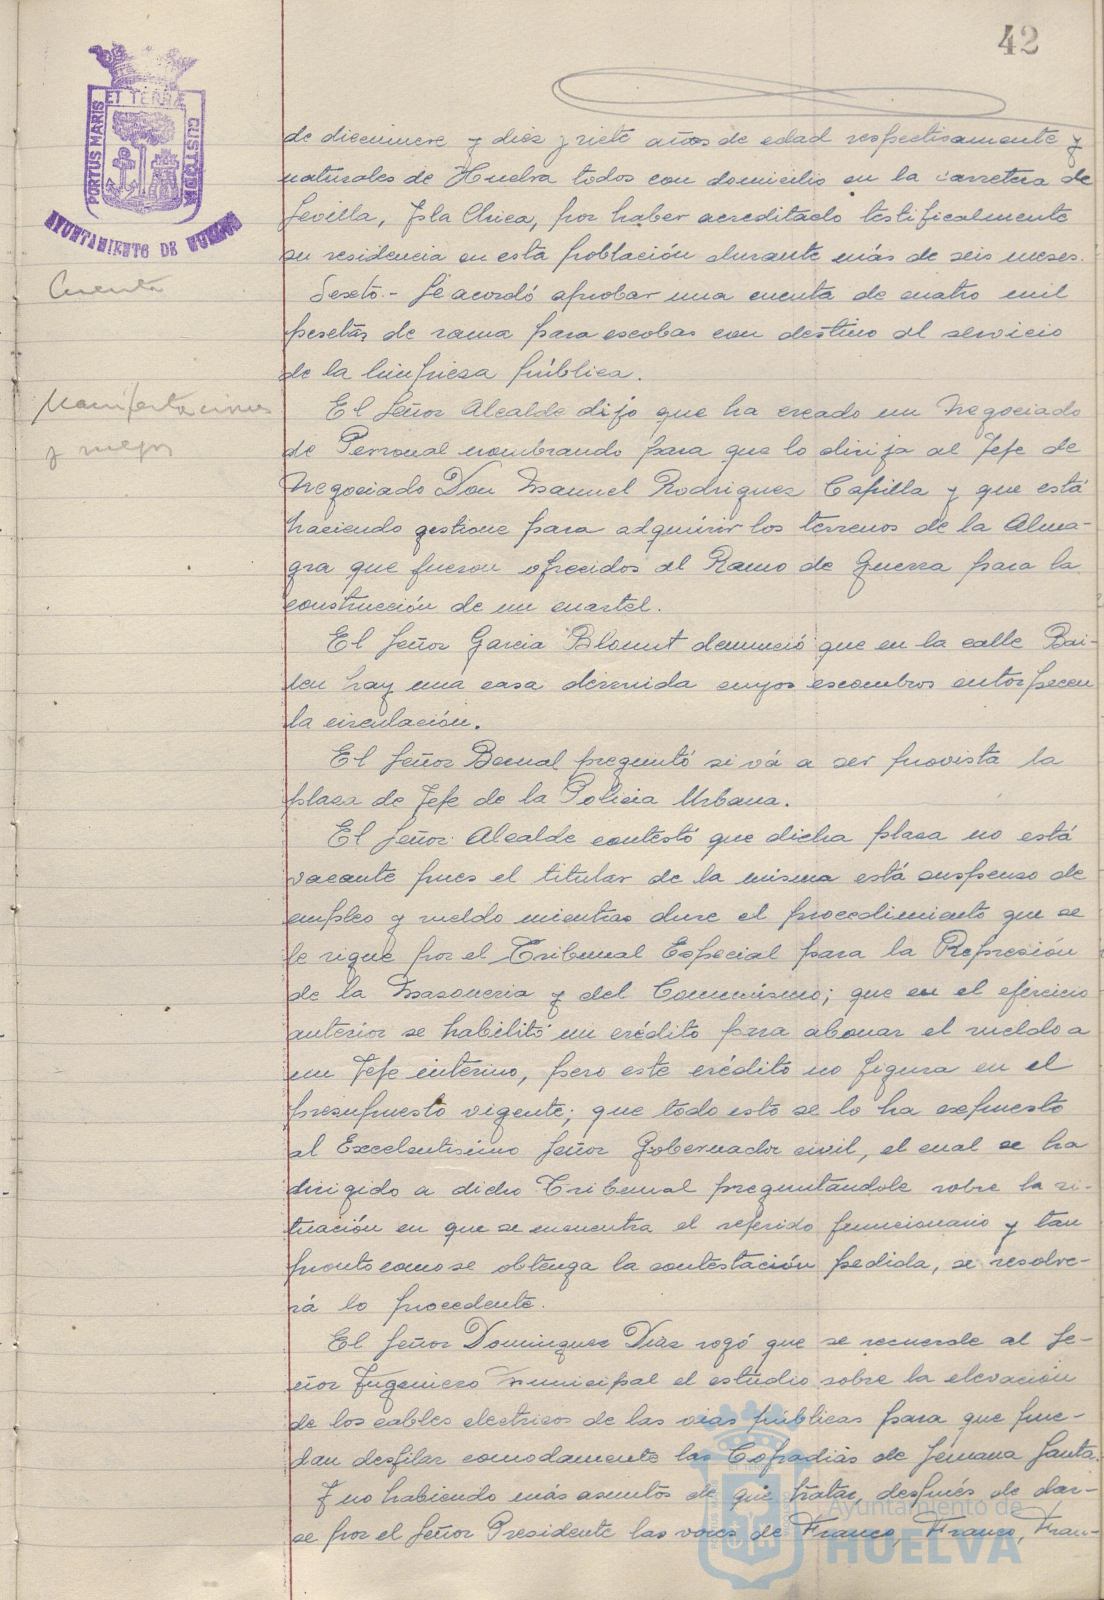 42
PORTUS MARIS ET TERRÆ CUSTODIA
AYUNTAMIENTO DE HUELVA
de diecinueve y diez y siete años de edad respectivamente y
naturales de Huelva todos con domicilio en la carretera de
Sevilla, Isla Chica, por haber acreditado testificalmente
su residencia en esta población durante más de seis meses.
Cuenta
Sexto.- Se acordó aprobar una cuenta de cuatro mil
pesetas de rama para escobas con destino al servicio
de la limpieza pública.
Manifestaciones
y ruegos
El Señor Alcalde dijo que ha creado un Negociado
de Personal nombrando para que lo dirija al Jefe de
Negociado Don Manuel Rodriguez Capilla y que está
haciendo gestione para adquirir los terrenos de la Alma-
gra que fueron ofrecidos al Ramo de Guerra para la
construcción de un cuartel.
El Señor Garcia Blount denunció que en la calle Bai-
len hay una casa derruida cuyos escombros entorpecen
la circulación.
El Señor Bernal preguntó si vá a ser provista la
plaza de Jefe de la Policia Urbana.
El Señor Alcalde contestó que dicha plaza no está
vacante pues el titular de la misma está suspenso de
empleo y sueldo mientras dure el procedimiento que se
le sigue por el Tribunal Especial para la Represión
de la Masoneria y del Comunismo; que en el ejercicio
anterior se habilitó un crédito para abonar el sueldo a
un Jefe interino, pero este crédito no figura en el
presupuesto vigente; que todo esto se lo ha expuesto
al Excelentisimo Señor Gobernador civil, el cual se ha
dirigido a dicho Tribunal preguntandole sobre la si-
tuación en que se encuentra el referido funcionario y tan
pronto como se obtenga la contestación pedida, se resolve-
rá lo procedente.
El Señor Dominguez Diaz rogó que se recuerde al Se-
ñor Ingeniero Municipal el estudio sobre la elevación
de los cables electricos de las vias públicas para que pue-
dan desfilar comodamente las Cofradías de Semana Santa.
Y no habiendo más asuntos de que tratar, después de dar-
se por el Señor Presidente las voces de Franco, Franco, Fran-
Ayuntamiento de
HUELVA